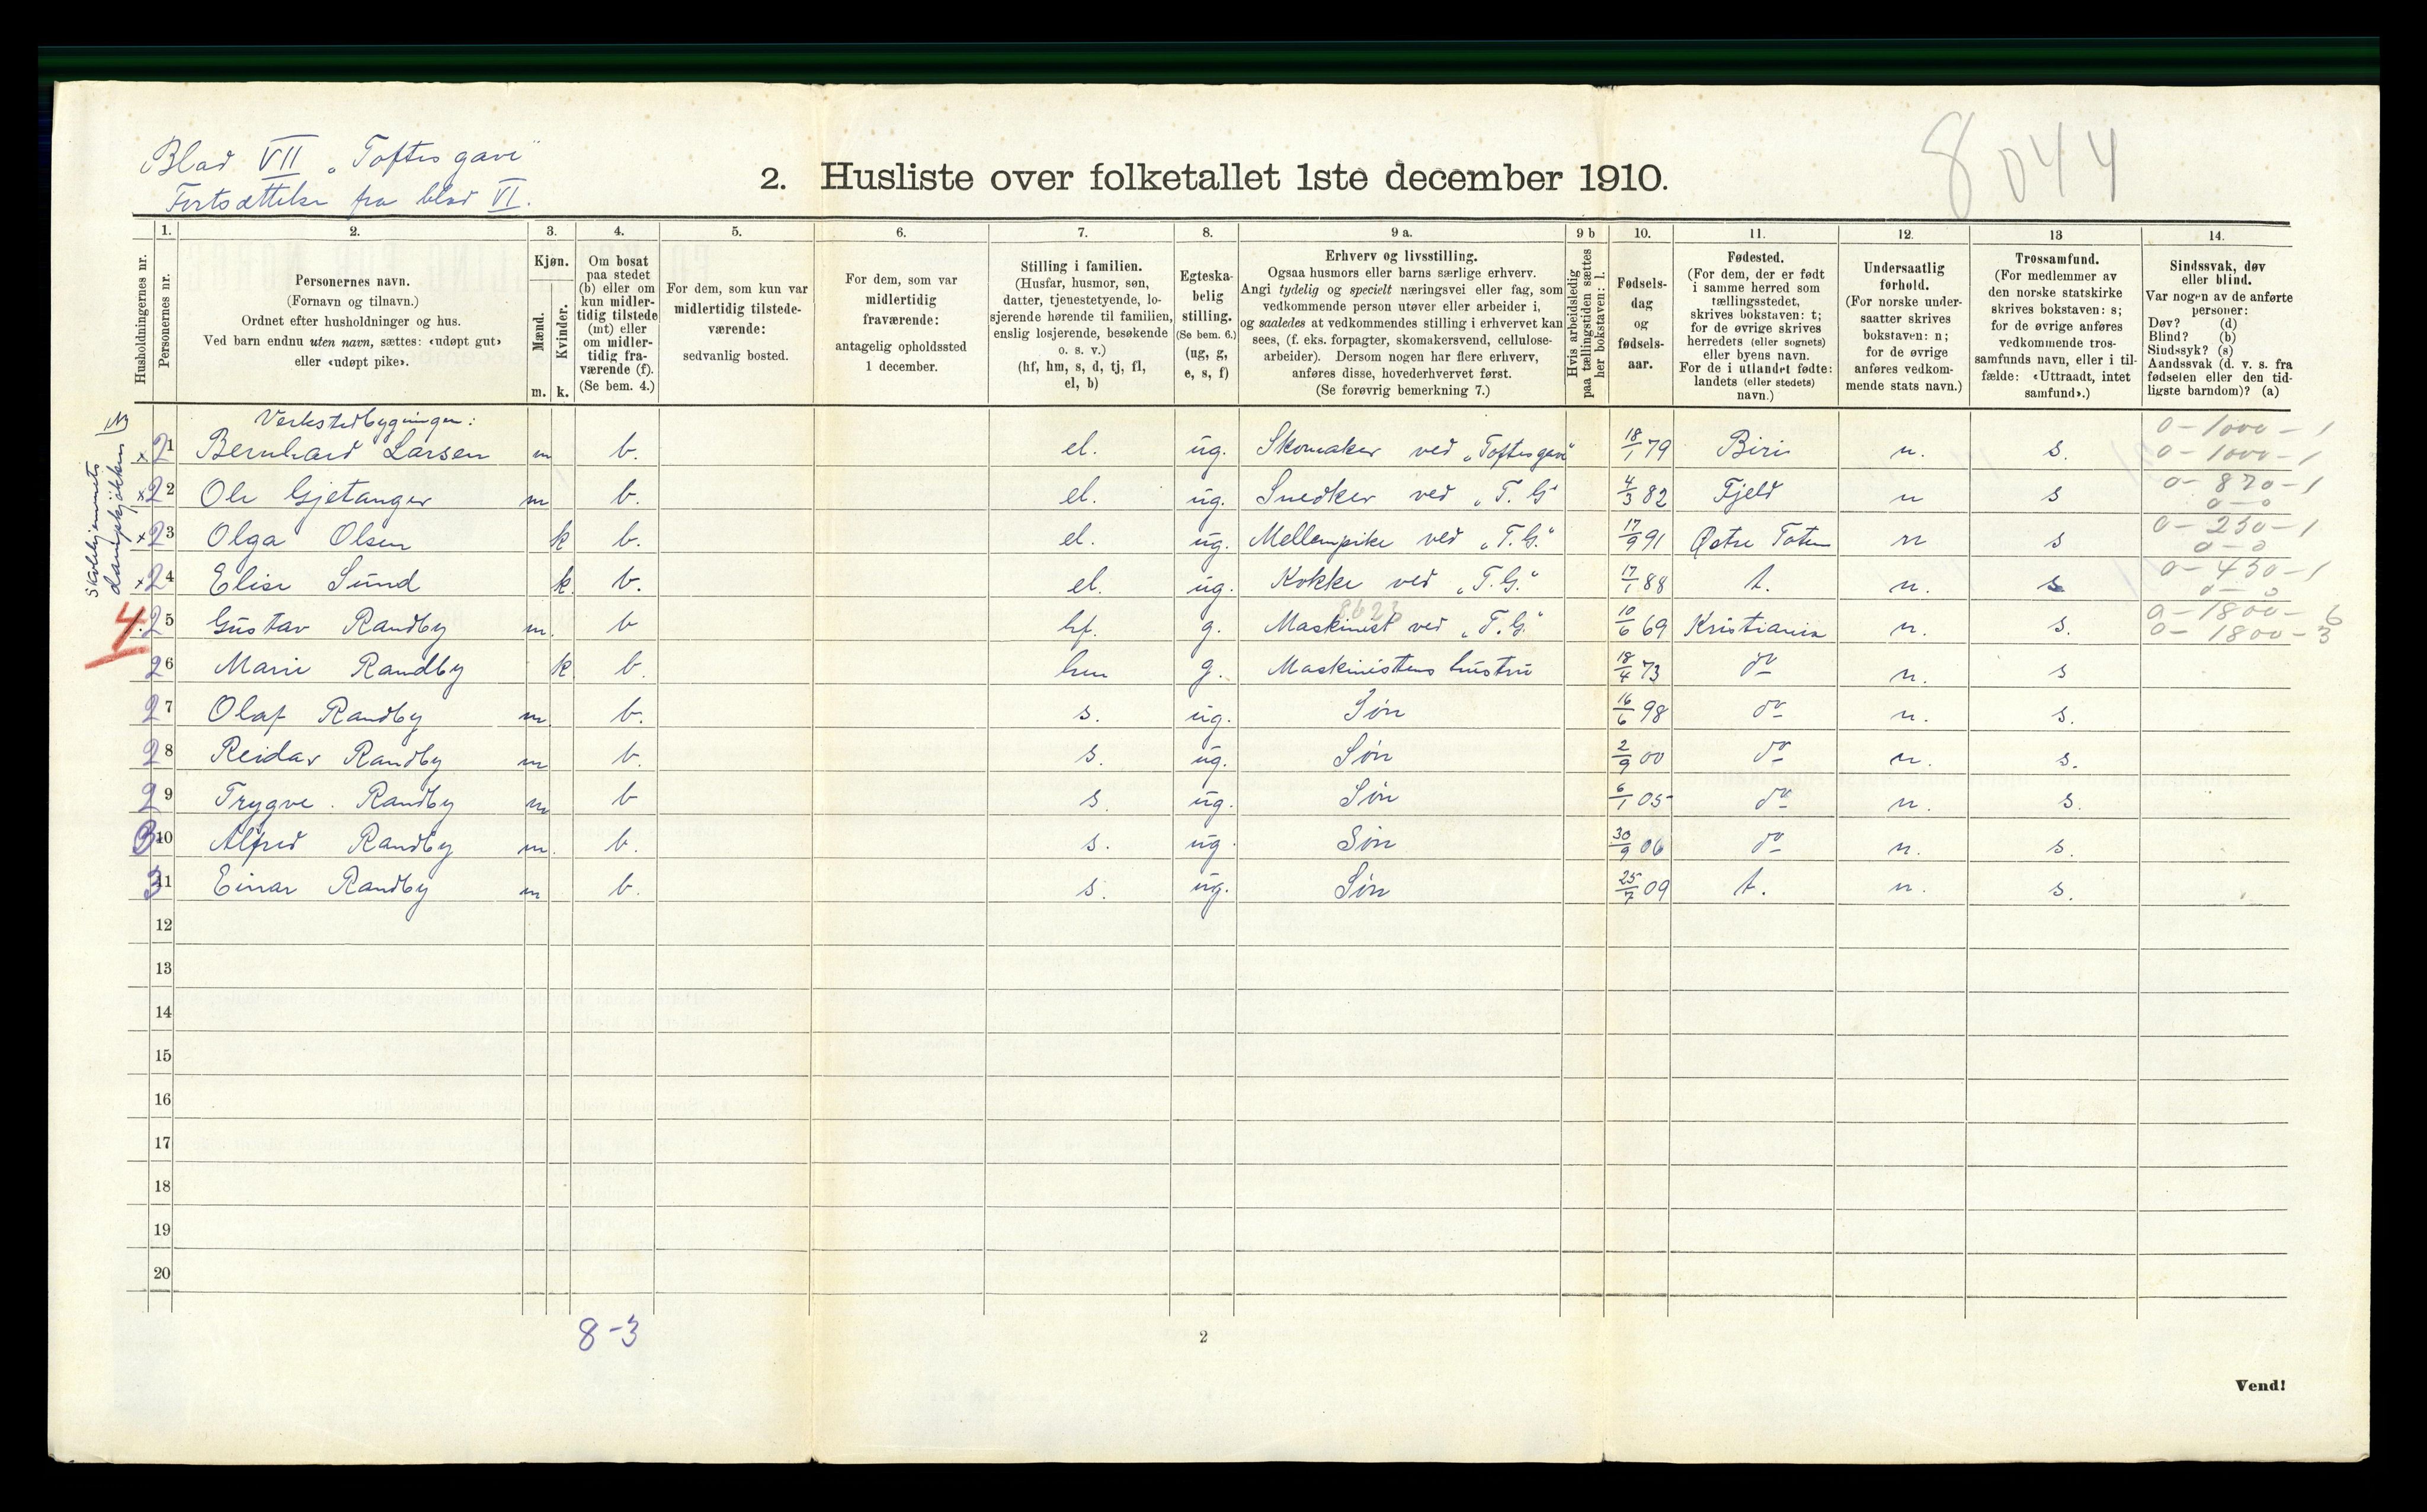 Blad VII „Toftes gave"
Fortsættelse fra blad VI.
8044
2. Husliste over folketallet 1ste december 1910.
Husholdningernes nr.
1.
Personernes nr.
2.
Personernes navn.
(Fornavn og tilnavn.)
Ordnet efter husholdninger og hus.
Ved barn endnu uten navn, sættes: «udøpt gut»
eller «udøpt pike».
3.
Kjøn.
Mænd.
Kvinder.
m. k.
4.
Om bosat
paa stedet
(b) eller om
kun midler-
tidig tilstede
(mt) eller
om midler-
tidig fra-
værende (f).
(Se bem. 4.)
5.
For dem, som kun var
midlertidig tilstede-
værende:
sedvanlig bosted.
6.
For dem, som var
midlertidig
fraværende:
antagelig opholdssted
1 december.
7.
Stilling i familien.
(Husfar, husmor, søn,
datter, tjenestetyende, lo-
sjerende hørende til familien,
enslig losjerende, besøkende
o. s. v.)
(hf, hm, s, d, tj, fl,
el, b)
8.
Egteska-
belig
stilling.
(Se bem. 6.)
(ug, g,
e, s, f)
9 a.
Erhverv og livsstilling.
Ogsaa husmors eller barns særlige erhverv.
Angi tydelig og specielt næringsvei eller fag, som
vedkommende person utøver eller arbeider i,
og saaledes at vedkommendes stilling i erhvervet kan
sees, (f. eks. forpagter, skomakersvend, cellulose-
arbeider). Dersom nogen har flere erhverv,
anføres disse, hovederhvervet først.
(Se forøvrig bemerkning 7.)
9 b
Hvis arbeidsledig
paa tællingstiden sættes
her bokstaven: l.
10.
Fødsels-
dag
og
fødsels-
aar.
11.
Fødested.
(For dem, der er født
i samme herred som
tællingsstedet,
skrives bokstaven: t;
for de øvrige skrives
herredets (eller sognets)
eller byens navn.
For de i utlandet fødte:
landets (eller stedets)
navn.)
12.
Undersaatlig
forhold.
(For norske under-
saatter skrives
bokstaven: n;
for de øvrige
anføres vedkom-
mende stats navn.)
13
Trossamfund.
(For medlemmer av
den norske statskirke
skrives bokstaven: s;
for de øvrige anføres
vedkommende tros-
samfunds navn, eller i til-
fælde: «Uttraadt, intet
samfund».)
14.
Sindssvak, døv
eller blind.
Var nogen av de anførte
personer:
Døv? (d)
Blind? (b)
Sindssyk? (s)
Aandssvak (d. v. s. fra
fødselen eller den tid-
ligste barndom)? (a)
Verkstedbygningen:
x 2 1 Bernhard Larsen m b. el. ug. Skomaker ved „Toftes gave" 18/1 79 Biri n. s. 0-1000-1 0-1000-1
x 2 2 Ole Gjetanger m b. el. ug. Snedker ved „T. G" 4/3 82 Fjeld n s 0-820-1 0-0
x 2 3 Olga Olsen k b. el. ug. Mellempike ved „T.G." 17/9 91 Østre Toten n s 0-250-1 0-0
x 2 4 Elise Sund k. b. el. ug. Kokke ved „T.G." 17/1 88 t. n. s 0-430-1 0-0
4. 2 5 Gustav Randby m. b hf. g. Maskinist ved „T.G." 10/6 69 Kristiania n. s. 0-1800-6 0-1800-3
2 6 Marie Randby k. b. hm g. Maskinistens hustru 18/4 73 do n. s
2 7 Olaf Randby m. b. s. ug. Søn 16/6 98 do n. s.
2 8 Reidar Randby m b. s. ug. Søn 2/9 00 do n. s.
2 9 Trygve Randby m b s. ug. Søn 6/1 05 do n. s.
3 10 Alfred Randby m. b. s. ug. Søn 30/9 06 do n. s.
3 11 Einar Randby m b. s. ug. Søn 25/7 09 t. n. s.
12
13
14
15
16
17
18
19
20
8-3
2
Vend!